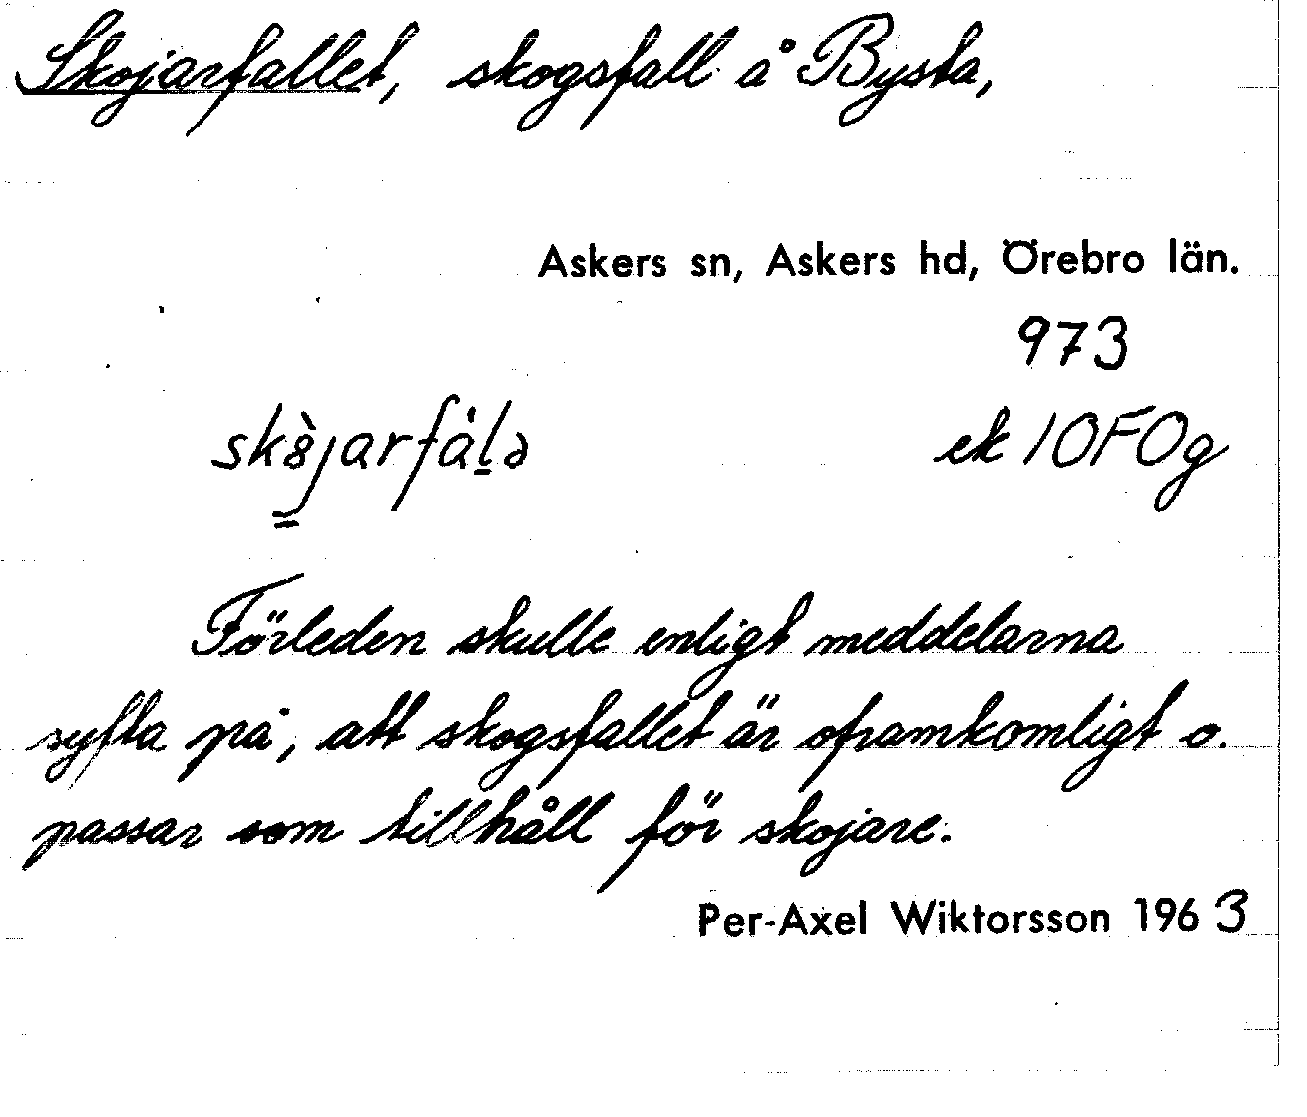 Skojarfallet, skogsfall å Bysta,
Askers sn, Askers hd, Örebro län.
973
ek 10F0g
Förleden skulle enligt meddelarna
syfta på, att skogsfallet är oframkomligt o.
passar som tillhåll för skojare.
Per-Axel Wiktorsson 1963